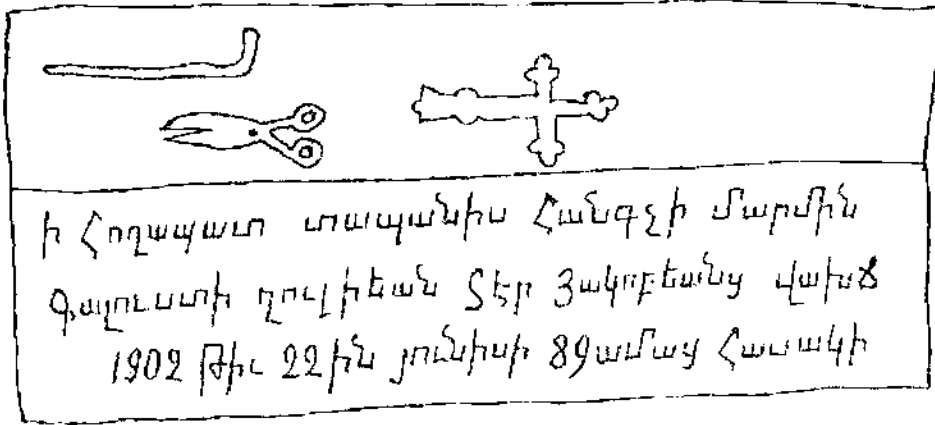 ի Հողապատ տապանիս Հանգչի մարմին
Գալուստի ղուլիեան Տէր Յակոբեանց վախճ
1902 թիւ 22ին յունիսի 89ամայ Հասակի